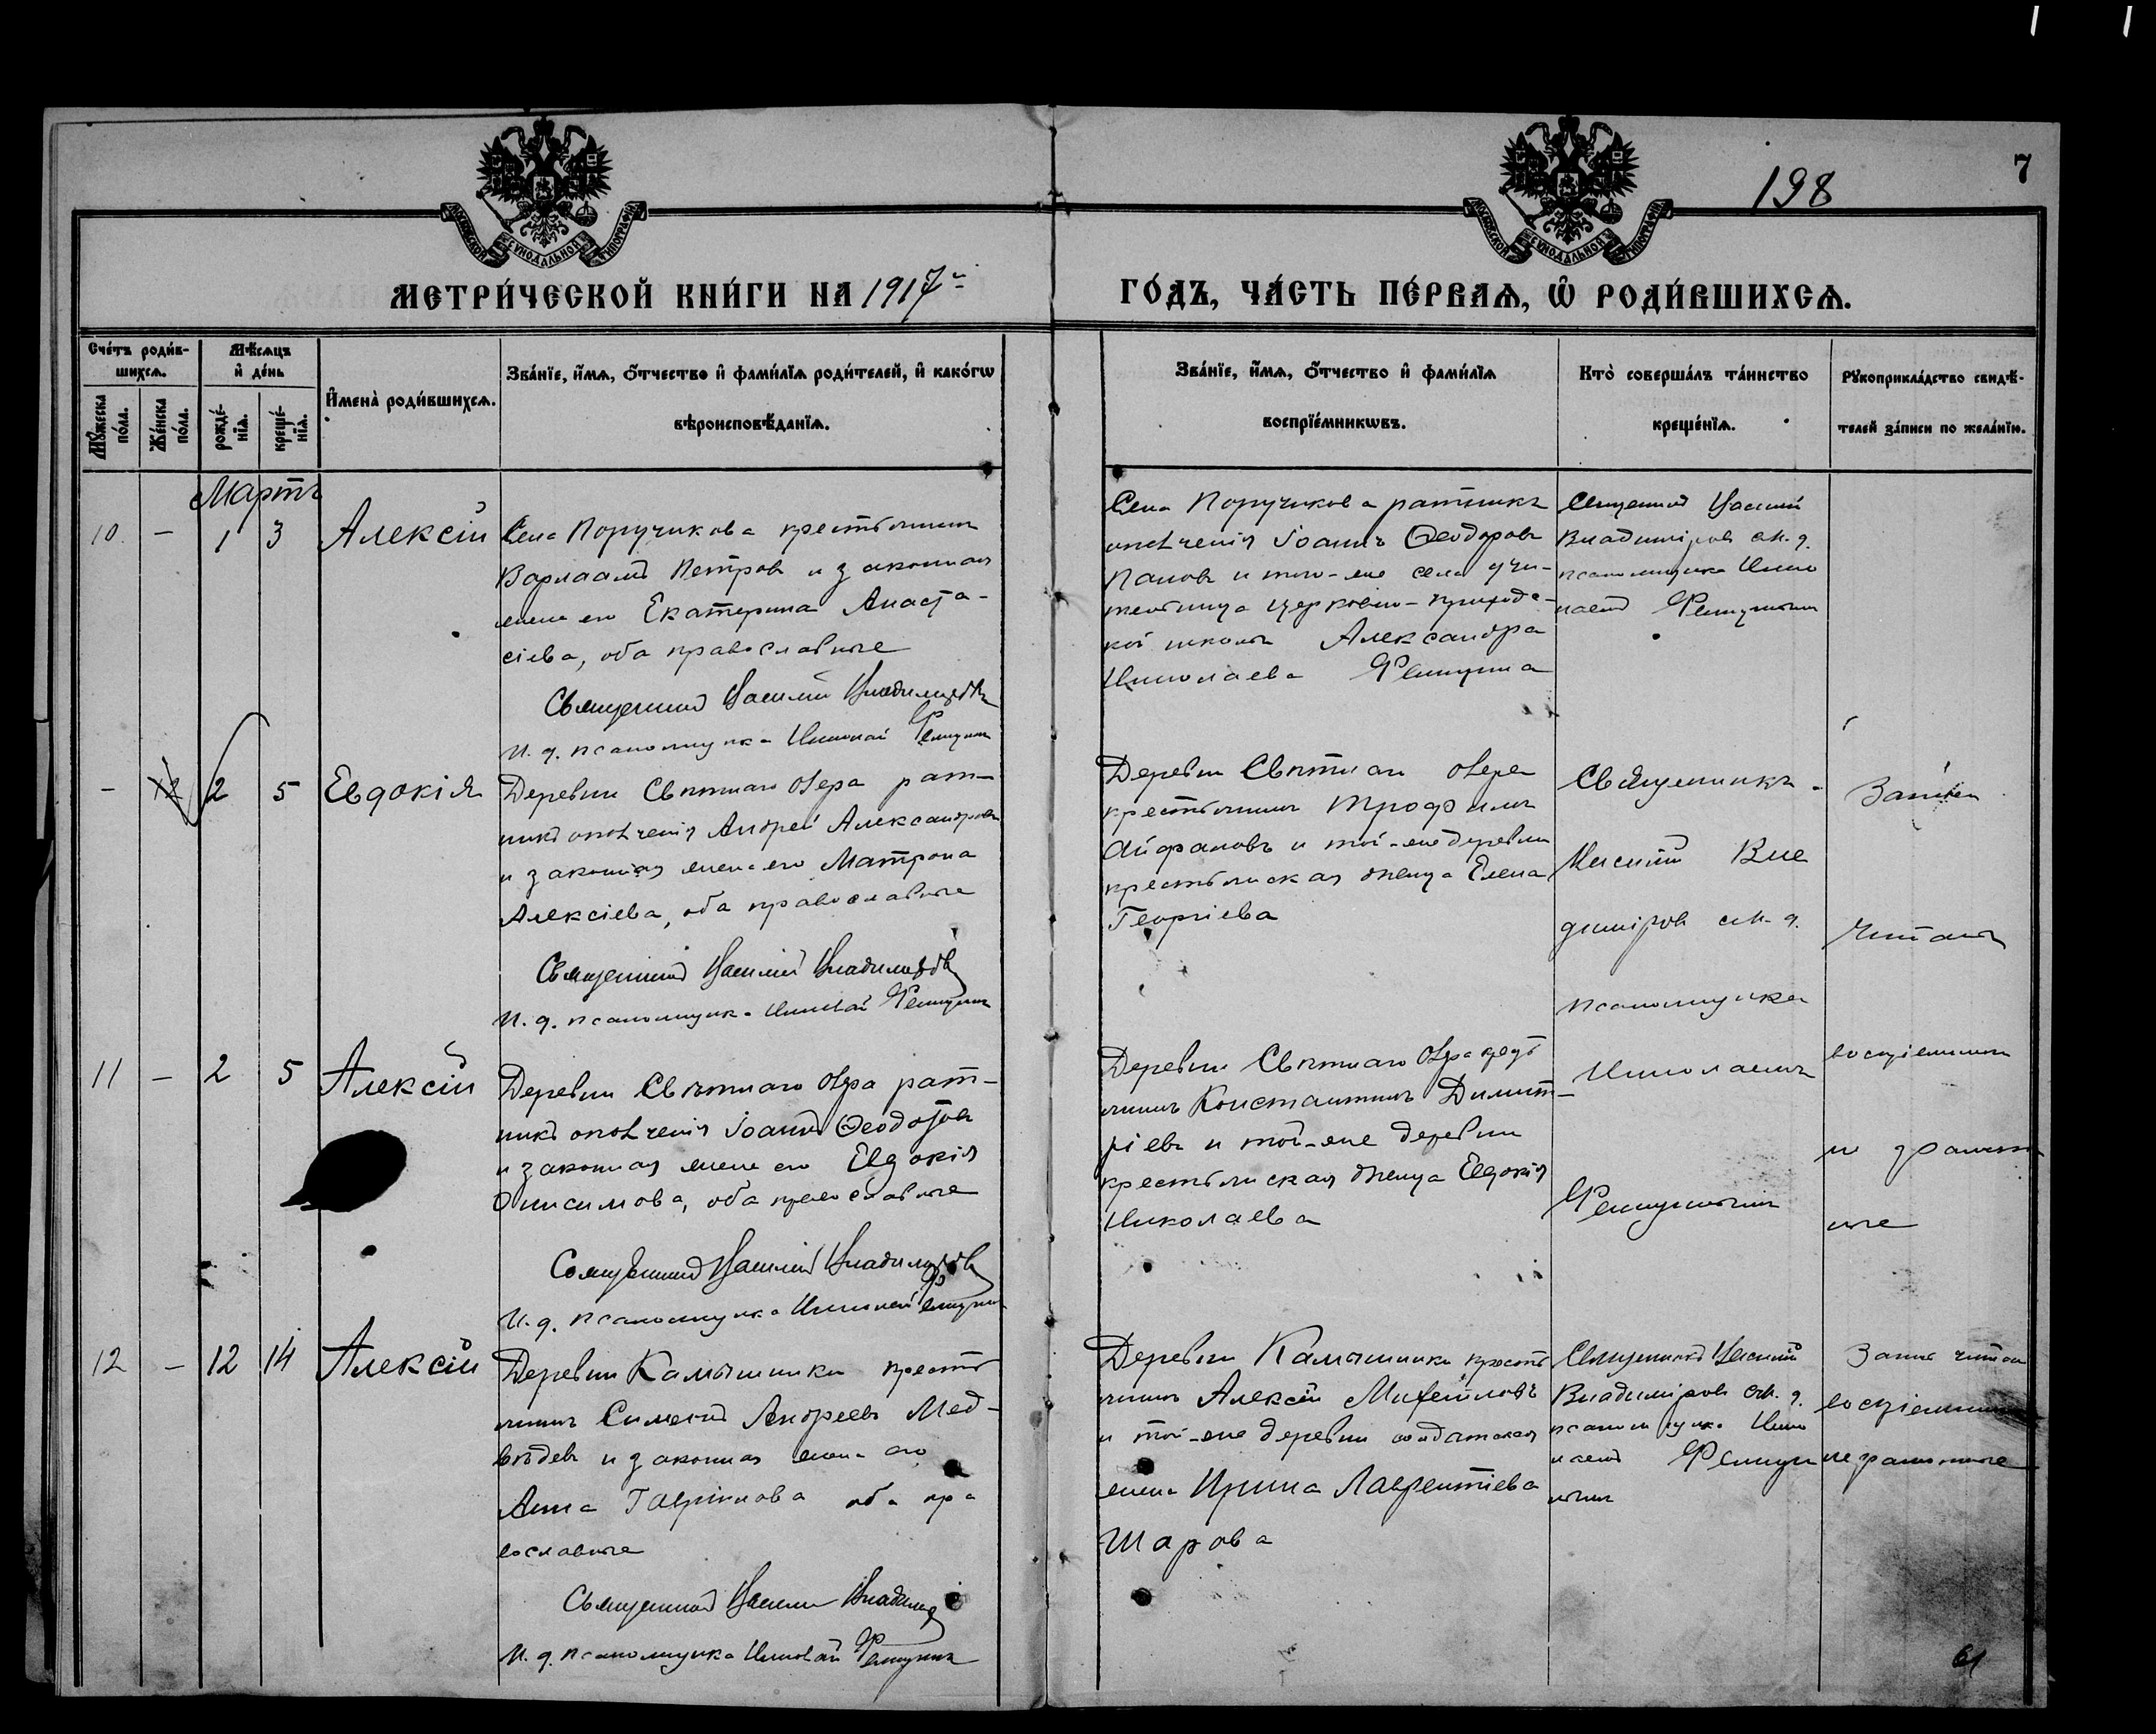 198
7
МОСКОВСКОЙ СѴНОДАЛЬНОЙ ТИПОГРАФІИ
МОСКОВСКОЙ СѴНОДАЛЬНОЙ ТИПОГРАФІИ
МЕТРИ́ЧЕСКОЙ КНИ́ГИ НА 1917
ГО́ДЪ, ЧА́СТЬ ПЕ́РВАѦ, Ѡ҆ РОДИ́ВШИХСѦ.
Сче́тъ роди́в-
шихсѧ.
Мѣ́сѧцъ
и҆ де́нь
Мꙋ́жеска
по́ла.
Же́нска
по́ла.
рожде́-
нїѧ.
креще́-
нїѧ.
И҆мена̀ роди́вшихсѧ.
Зва́нїе, и҆́мѧ, ѻ҆́тчество и҆ фами́лїѧ роди́телей, и҆ како́гѡ
вѣроисповѣ́данїѧ.
Зва́нїе, и҆́мѧ, ѻ҆́тчество и҆ фами́лїѧ
воспрїе́мникѡвъ.
Кто̀ соверша́лъ та́инство
креще́нїѧ.
Рꙋкоприкла́дство свидѣ́-
телей за́писи по жела́нїю.
Мартъ
10. - 1 3 Алексій
Села Поручикова крестьянинъ
Варлаамъ Петровъ и законная
жена его Екатерина Анаста-
сіева, оба православные
Священникъ Василій Владиміровъ
И. д. псаломщика Николай
Села Поручикова ратникъ
ополченія Іоаннъ Ѳеодоровъ
Пановъ и того-же села учи-
тельница церковно-приходс-
кой школы Александра
Николаева
Священникъ Василій
Владиміровъ с и. д.
псаломщика Нико
лаемъ
- 12 2 5 Евдокія
Деревни Свѣтлаго Озера рат-
никъ ополченія Андрей Александровъ
и законная жена его Матрона
Алексіева, оба православные
Священникъ Василій Владиміровъ
И. д. псаломщика Николай
Деревни Свѣтлаго Озера
крестьянинъ Трофимъ
и той-же деревни
крестьянская дѣвица Елена
Георгіева
Священникъ
Василій Вла
диміровъ с и. д.
псаломщика
Николаемъ
Запись
читана
воспріемники
не грамот
ные
11 - 2 5 Алексій
Деревни Свѣтлаго Озера рат-
никъ ополченія Іоаннъ Ѳеодотовъ
и законная жена его Евдокія
Онисимова, оба православные
Священникъ Василій Владиміровъ
И. д. псаломщика Николай
Деревни Свѣтлаго Озера кресть
янинъ Константинъ Димит-
ріевъ и той-же деревни
крестьянская дѣвица Евдокія
Николаева
12 - 12 14 Алексій
Деревни Камышинки кресть
янинъ Симеонъ Андреевъ Мед-
вѣдевъ и законная жена его
Анна Гавріилова оба пра
вославные
Священникъ Василій Владиміровъ
И. д. псаломщика Николай
Деревни Камышинки кресть
янинъ Алексій Михайловъ
и той-же деревни солдатская
жена Ирина Лаврентіева
Шарова
Священникъ Василій
Владиміровъ с и. д.
псаломщика Нико
лаемъ
Запись читана
воспріемники
неграмотные
61